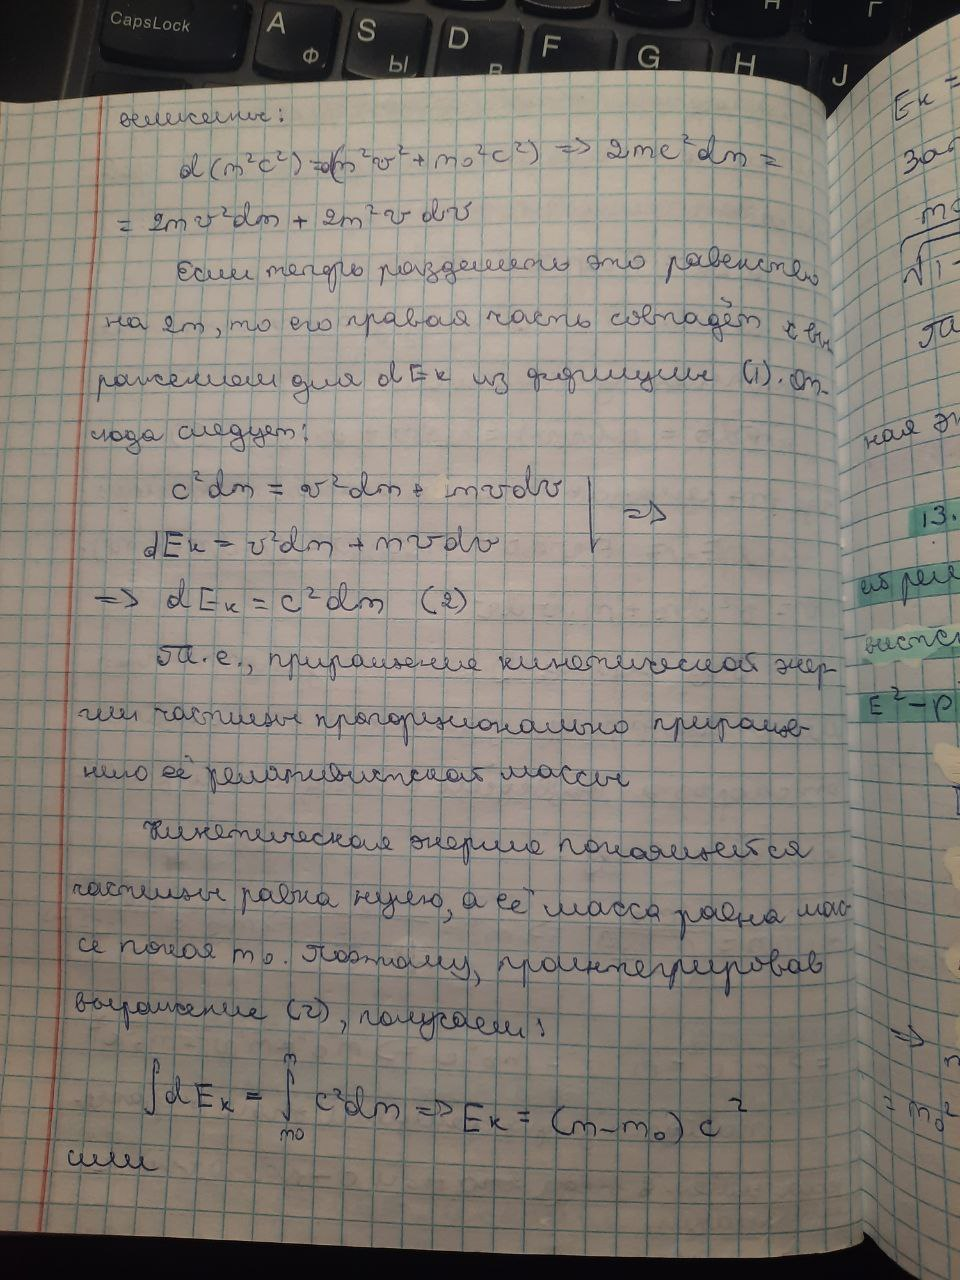 CapsLock
A
Ф
S
Ы
D
В
F
G
H
J
вение:
d(m²c²) = d(m²v² + m₀²c²) => 2mc²dm =
= 2mv²dm + 2m²v dv
Если теперь разделить это равенство
на 2m, то его правая часть совпадёт с вы
ражением для dEк из формулы (1). От-
сюда следует:
c²dm = v²dm + mvdv
=>
dEк = v²dm + mvdv
=> dEк = c²dm (2)
Т.е., приращение кинетической энер-
гии частицы пропорционально прираще-
нию её релятивистской массы
Кинетическая энергия покоящейся
частицы равна нулю, а её масса равна мас-
се покоя m₀. Поэтому, проинтегрировав
выражение (2), получаем:
∫dEк = ∫ₘ₀ᵐ c²dm => Eк = (m-m₀)c²
или
Eк =
√1-
ная эн
13.
E²-p
=>
= m₀²